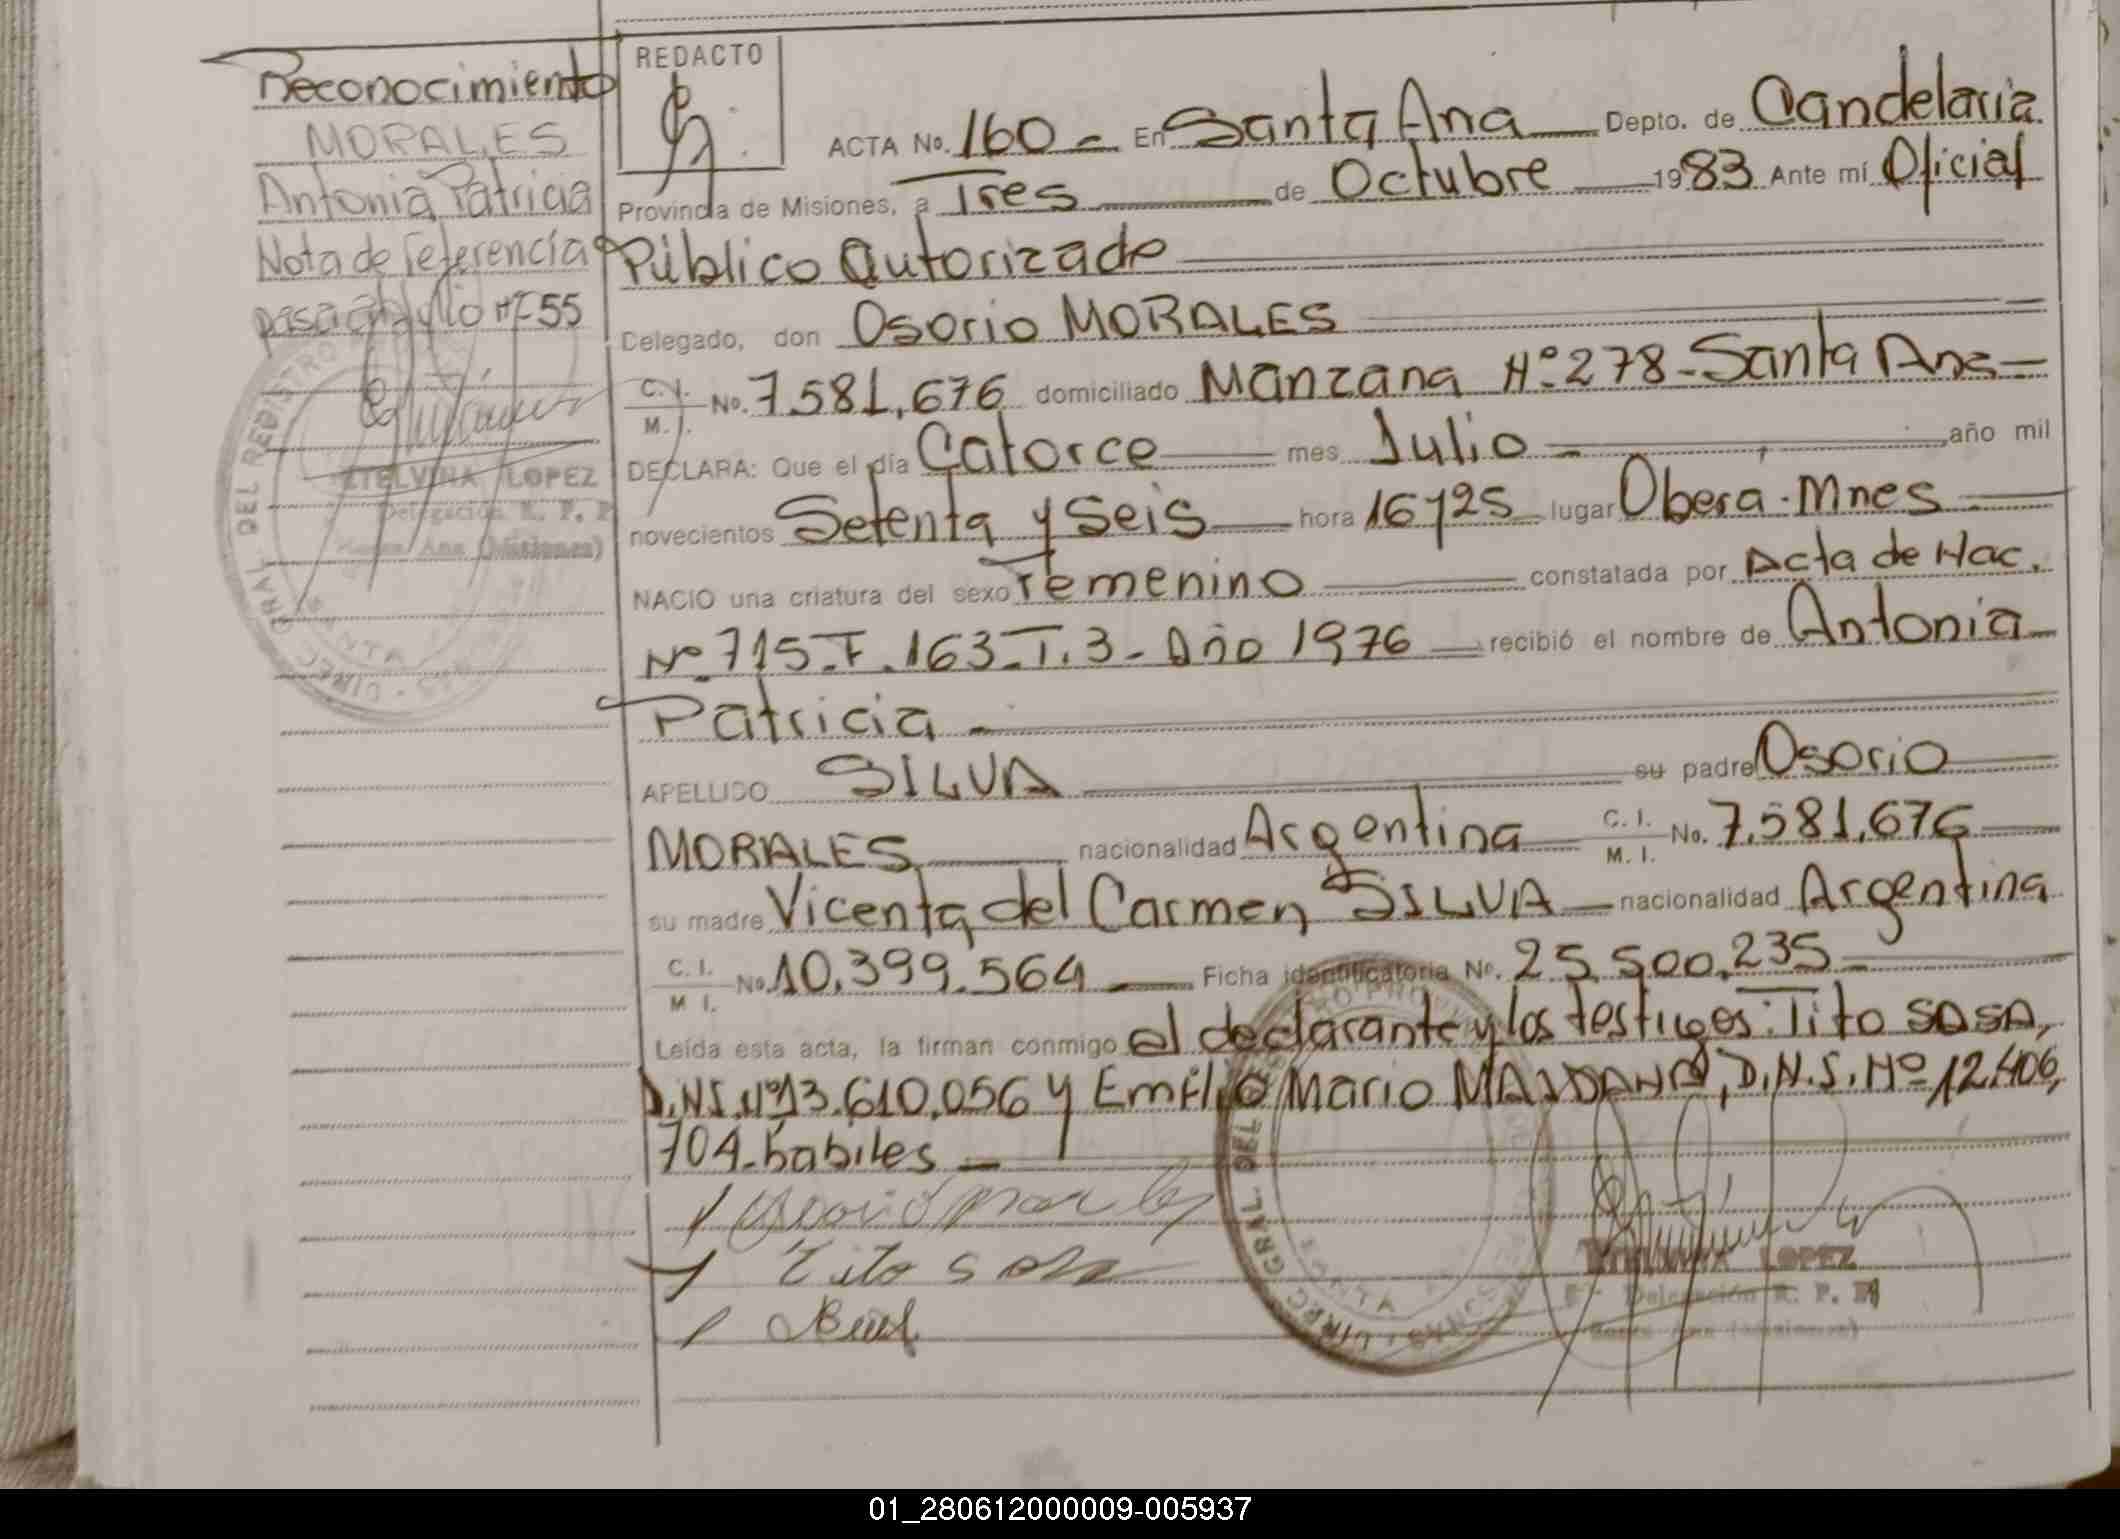 Reconocimiento
MORALES
Antonia Patricia
Nota de referencia
pasa al folio Nº 55
ETELVINA LOPEZ
Delegación R. P. P.
Santa Ana (Misiones)
REDACTO
ACTA No. 160 - En Santa Ana Depto. de Candelaria
Provincia de Misiones, a Tres de Octubre 1983 Ante mí Oficial
Público Autorizado
Delegado, don Osorio MORALES
C. I. M. I. No. 7.581.676 domiciliado Manzana Nº 278 - Santa Ana -
DECLARA: Que el día Catorce mes Julio - año mil
novecientos Setenta y Seis hora 16 y 25 lugar Oberá - Mnes
NACIO una criatura del sexo Femenino constatada por Acta de Nac.
Nº 715 - F. 163 - T. 3 - Año 1976 recibió el nombre de Antonia
Patricia -
APELLIDO SILVA su padre Osorio
MORALES nacionalidad Argentina C. I. M. I. No. 7.581.676
su madre Vicenta del Carmen SILVA nacionalidad Argentina
C. I. M I. No. 10.399.564 Ficha identificatoria No. 25.500.235 -
Leída esta acta, la firman conmigo el declarante y los testigos: Tito SOSA,
D.N.I. Nº 13.610.056 y Emilio Mario MAIDANA, D.N.I. Nº 12.406.
704 - hábiles -
Osorio Morales
Tito Sosa
ETELVINA LOPEZ
Delegación R. P. P.
Santa Ana (Misiones)
DIREC. GRAL. DEL
01_280612000009-005937